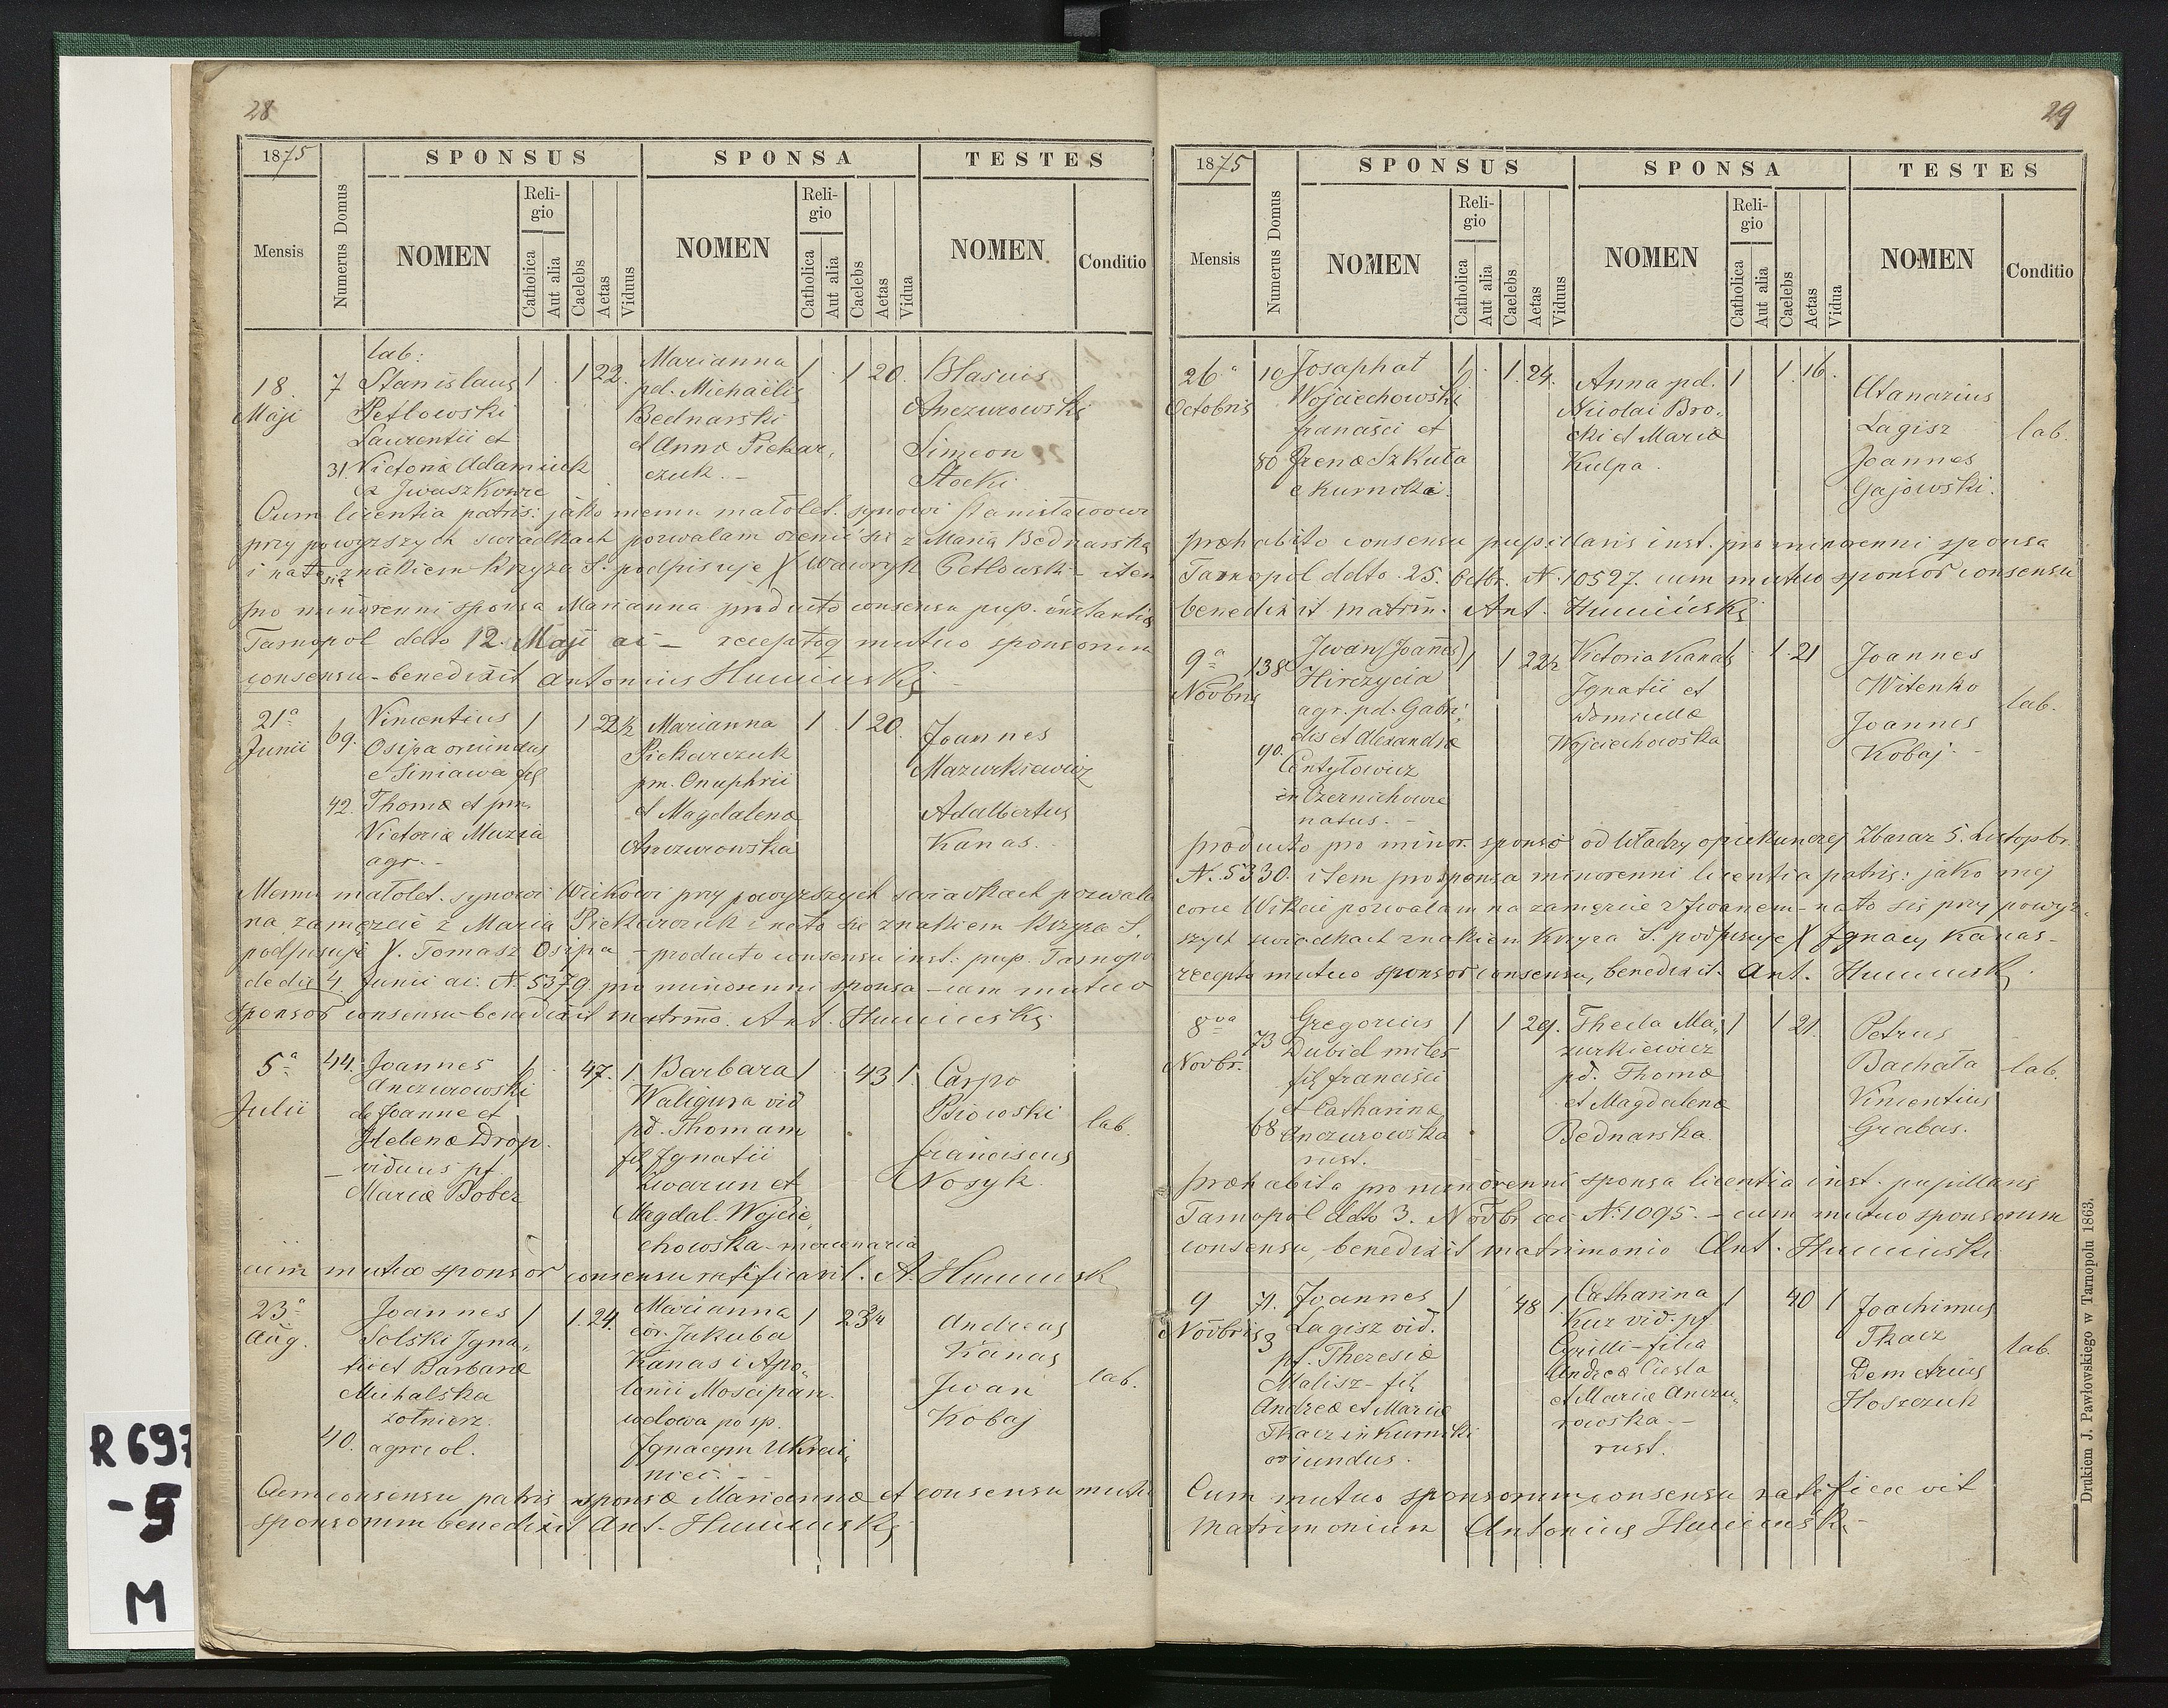 28
1875
SPONSUS
SPONSA
TESTES
Mensis
Numerus Domus
NOMEN
Religio
Catholica
Aut alia
Caelebs
Aetas
Viduus
NOMEN
Religio
Catholica
Aut alia
Caelebs
Aetas
Vidua
NOMEN
Conditio
18 Maji
7
31
lab:
Stanislaus
Petlowski
Laurentii et
Victoriæ Adamiuk
ex Iwaszkowce
1 1 22.
Marianna
pd. Michaëlis
Bednarski
et Annæ Piekar,
czuk. -
1 1 20.
Blasius
Anczurowski
Simeon
Stocki
Cum licentia patris: jako memu małolet. synowi Stanisławowi
przy powyższych swiadkach pozwalam ożenić się z Maria Bednarska
i na to się znakiem krzyża S. podpisuje X Wawryk Petlowski - item
pro minorenni sponsa Marianna producto consensu pup. instantiæ
Tarnopol ddto 12. Maji ai - receptoq mutuo sponsorum
consensu - benedixit Antonius
21a Junii
69.
42.
Vincentius
Osipa oriundus
e Siniawa fil
Thomæ et pm.
Victoriæ Muzia
agr. -
1 1 22½
Marianna
Piekarczuk
pm. Onuphrii
et Magdalenæ
Anczurowska
1 1 20.
Joannes
Mazurkiewicz
Adalbertus
Kanas.
Memu małolet. synowi Wickowi przy powyższych swiadkach pozwalam
na zamęzcie z Maria Piekarczuk i na to się znakiem krzyża S.
podpisuje X. Tomasz Osipa - producto consensu inst: pup. Tarnopol
de die 4. Junii ai: N. 5379. pro minorenni sponsa - cum mutuo
sponsor consensu benedixit matrimo. Ant.
5a Julii
44.
Joannes
Anczurowski
de Joanne et
Helenæ Drop.
viduus pf.
Mariæ Bober
1 47. 1
Barbara
Waligura vid
pd. Thomam
fil Ignatii
Zwarun et
Magdal. Wojcie,
chowska - mercenaria
1 43 1.
Carpo
Psiowski
franciscus
Nosyk.
lab.
cum mutuo sponsor consensu ratificavit. A.
23a Aug.
40.
Joannes
Solski Igna,
tii et Barbaræ
Michalska
żołnierz.
agricol.
1 1. 24.
Marianna
cór. Jakuba
Kanas i Apo,
lonii Moscipan.
wdowa po sp.
Ignacym Ukrai,
niec. - -
1 23¼
Andreas
Kanas
Iwan
Kobaj
lab.
Cum consensu patris sponsæ Mariannæ et consensu mutuo
sponsorum benedixit Ant.
29
1875
SPONSUS
SPONSA
TESTES
Mensis
Numerus Domus
NOMEN
Religio
Catholica
Aut alia
Caelebs
Aetas
Viduus
NOMEN
Religio
Catholica
Aut alia
Caelebs
Aetas
Vidua
NOMEN
Conditio
26a Octobris
10
80
Josaphat
Wojciechowski
franciści et
Irenæ Szkuła
e Kurniki.
1. 1. 24.
Anna pd.
Nicolai Bro,
cki et Mariæ
Kulpa.
1 1. 16.
Atanazius
Łagisz
Joannes
Gajowski.
lab.
præhabito consensu pupillaris inst. pro minorenni sponsa
Tarnopol ddto. 25. Octbr. N. 10527. cum mutuo sponsor consensu
benedixit matrim. Ant.
9a Novbris
138
90.
Iwan (Joannes)
Hirczycia
agr. pd. Gabri,
elis et Alexandræ
Centyłowicz
in Czernichowce
natus. -
1 1 22½
Victoria Kanas
Ignatii et
Domicellæ
Wojciechowska
1 1 21
Joannes
Witenko
Joannes
Kobaj -
lab.
producto pro minor. sponso od Władzy opiekunczej Zbaraz 5. Listopbr.
N. 5330. item pro sponsa minorenni licentia patris: jako mej
corce Wikcie pozwalam na zamęzcie z Iwanem - na to się przy powyż,
szych swiadkach znakiem krzyza S. podpisuje X Ignacy Kanas -
recepto mutuo sponsor consensu, benedixit. Ant.
8va Novbr.
73
68
Gregorius
Dubiel miles
fil francisci
et Catharinæ
Anczurowska
rust.
1 1 29.
Thecla Ma,
zurkiewicz
pd. Thomæ
et Magdalenæ
Bednarska.
1 1 21.
Petrus
Bachata
Vincentius
Grabas.
lab.
præhabita pro minorenni sponsa licentia inst. pupillaris
Tarnopol ddto 3. Novbr ai N. 1095. - cum mutuo sponsorum
consensu, benedixit matrimonio Ant.
9 Novbris
71.
3
Joannes
Łagisz vid.
pf. Theresiæ
Malisz - fil
Andreæ et Mariæ
Tkacz in Kurniki
oriundus.
1 48 1.
Catharina
Kuz vid. pf.
Cyrilli - filia
Andreæ Ciesla
et Mariæ Anczu,
rowska. -
rust.
1 40 1
Joachimus
Tkacz
Demetrius
Hoszczuk
lab.
Cum mutuo sponsorum consensu ratificavit
matrimonium Antonius
Drukiem J. Pawłowskiego w Tarnopolu 1863.
R 697
-5
M